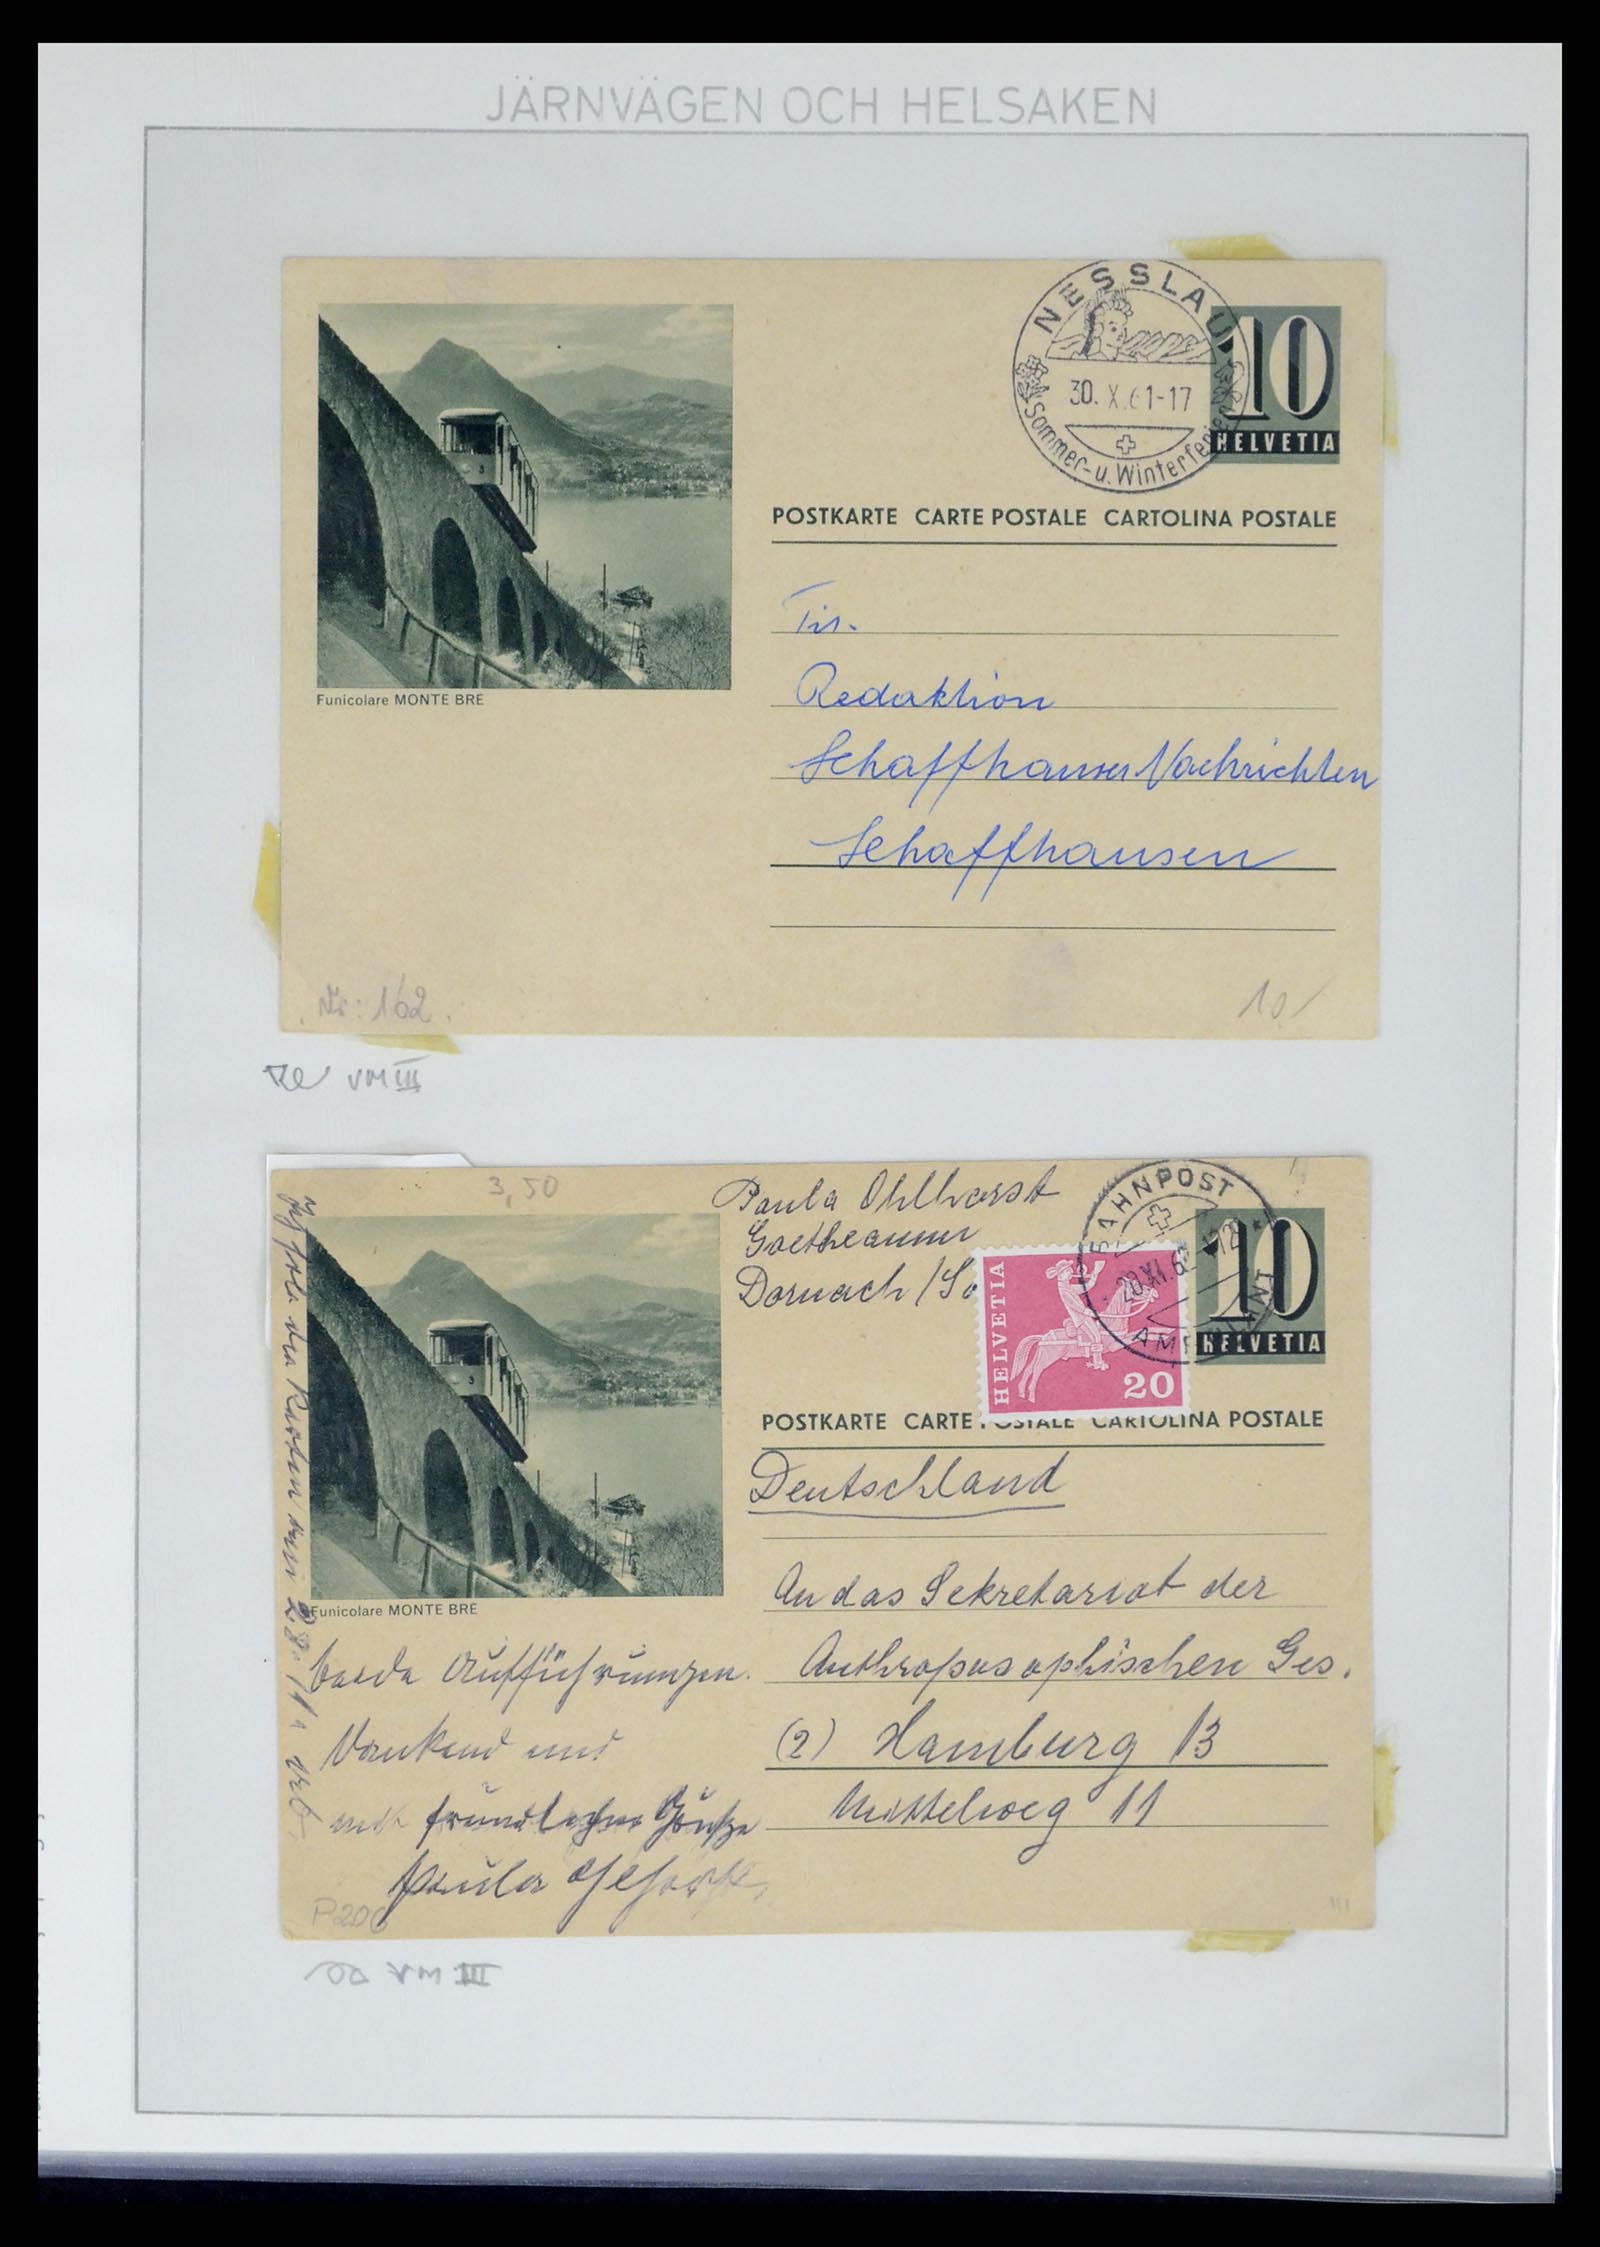 JÄRNVÄGEN OCH HELSAKEN
NESSLAU
30. X. 61-17
Sommer- u. Winterferien
10
HELVETIA
POSTKARTE CARTE POSTALE CARTOLINA POSTALE
Funicolare MONTE BRE
3
Tit.
Redaktion
Schaffhauser Nachrichten
Schaffhausen
Nr: 162
10
VM III
3,50
Paula Ohlhorst
Goetheanum
Dornach / So
BAHNPOST
20.XI.6
AMBULANT
10
HELVETIA
HELVETIA
20
POSTKARTE CARTE POSTALE CARTOLINA POSTALE
3
Deutschland
An das Sekretariat der
Anthroposophischen Ges.
(2) Hamburg 13
Mittelweg 11
Funicolare MONTE BRE
beide Aufführungen.
Dankend und
mit freundlichem Grüße
Paula Ohlhorst
P206
VM III